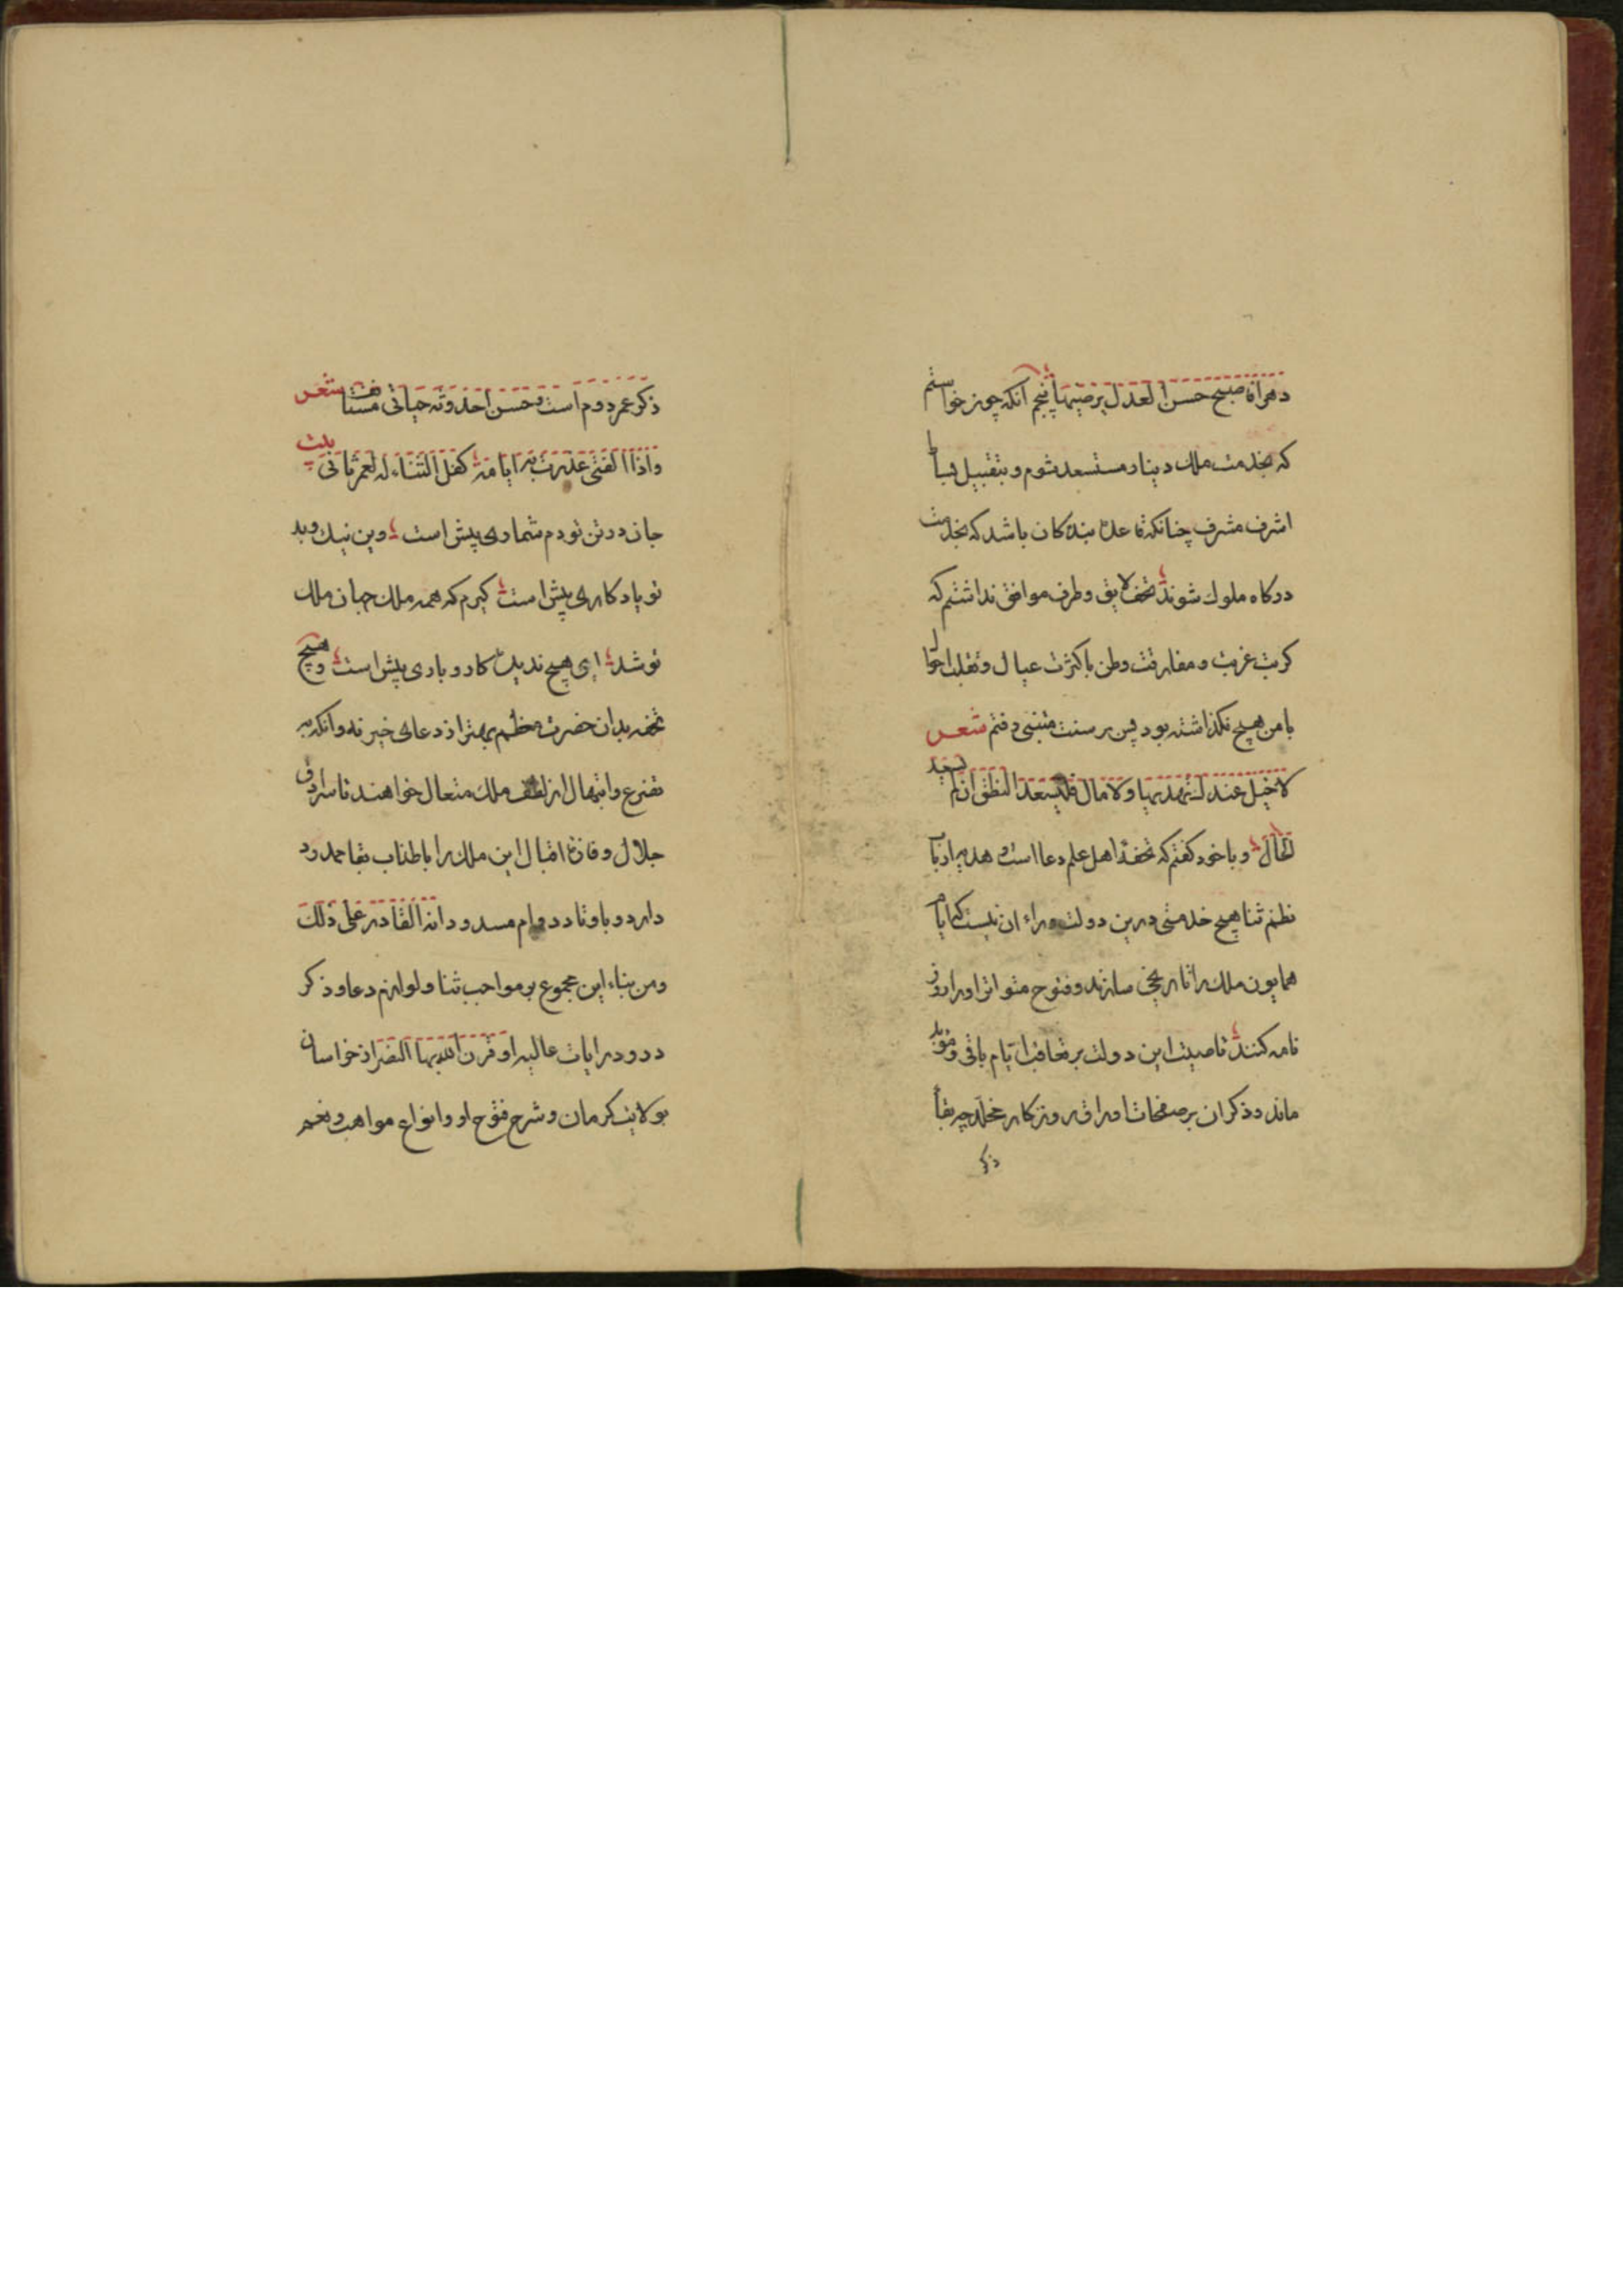 دهراة صبیح حسن العدل یرضیها پنجم آنکه چون خواستم
که بخدمت ملک دینار مستسعد شوم و بتقبیل بساط
اشرف مشرف چنانکه قاعدۀ بندکان باشد که بخدمت
درکاه ملوک شوند تحفۀ لایق و طرفۀ موافق نداشتم که
کربت غربت و مفارقت وطن با کثرت عیال و تقلب احوال
با من هیچ نکذاشته بود پس بر سنت متنبی رفتم شعر
لا خیل عندک تهدیها و لا مال فلیسعد النطق ان لم یسعد
الحال و با خود کفتم که تحفۀ اهل علم دعا است و هدیه ارباب
نظم ثنا هیچ خدمتی درین دولت وراء ان نیست که ایام
همایون ملک را تاریخی سازند و فتوح متواتر او را روز
نامه کنند تا صیت این دولت بر تعاقب ایام باقی و مؤبد
ماند و ذکر ان بر صفحات اوراق روزکار مخلد چه بقاء
ذکر
ذکر عمر دوم است و حسن احدوثه حیاتی مستانف شعر
واذا الفتی غدرت به ایامه کفل الثناء له لعمر ثانی بیت
جان در تن تو دم شماری پیش است وین نیک و بد
تو یادکاری پیش است کیرم که همه ملک جهان ملک
تو شد ای هیچ ندیده کار و باری پیش است و هیچ
تحفه بدان حضرت معظم بهتر از دعای خیر نه و آنکه به
تضرع و ابتهال از لطف ملک متعال خواهند تا سرادق
جلال و قازۀ اقبال این ملک را باطناب بقا ممدود
دارد و باوتاد دوام مسدود انه القادر علی ذلک
و من بناء این مجموع بر مواجب ثنا و لوازم دعا و ذکر
ورود رایات عالیه او قرن الله بها النصر از خراسان
بولایت کرمان و شرح فتوح او و انواع مواهب و نعم